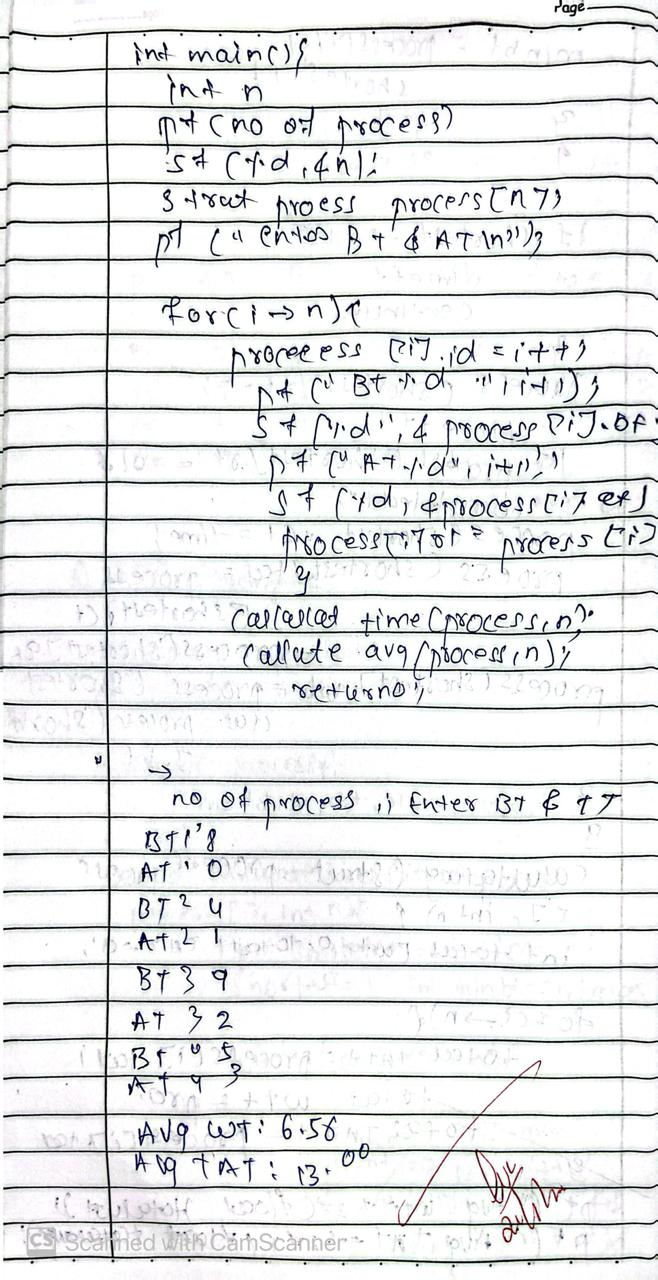 Page
int main(){
int n
pf (no of process)
sf (%d, &n);
struct proess process[n];
pf (" enter Bt & AT \n");
for(i → n){
proceeess [i].id = i++;
pf (" Bt %d ", i+1);
sf (%d", & process [i].bt
pf (" At %d", i+1);
sf (%d, &process[i] at)
process[i] rt = process [i]
}
time (process, n);
avg (process, n);
return 0;
" →
no of process 4 Enter BT & AT
BT 1 8
AT 1 0
BT 2 4
AT 2 1
BT 3 9
AT 3 2
BT 4 5
AT 4 3
Avg WT: 6.50
Avg TAT: 13.00
CS Scanned with CamScanner